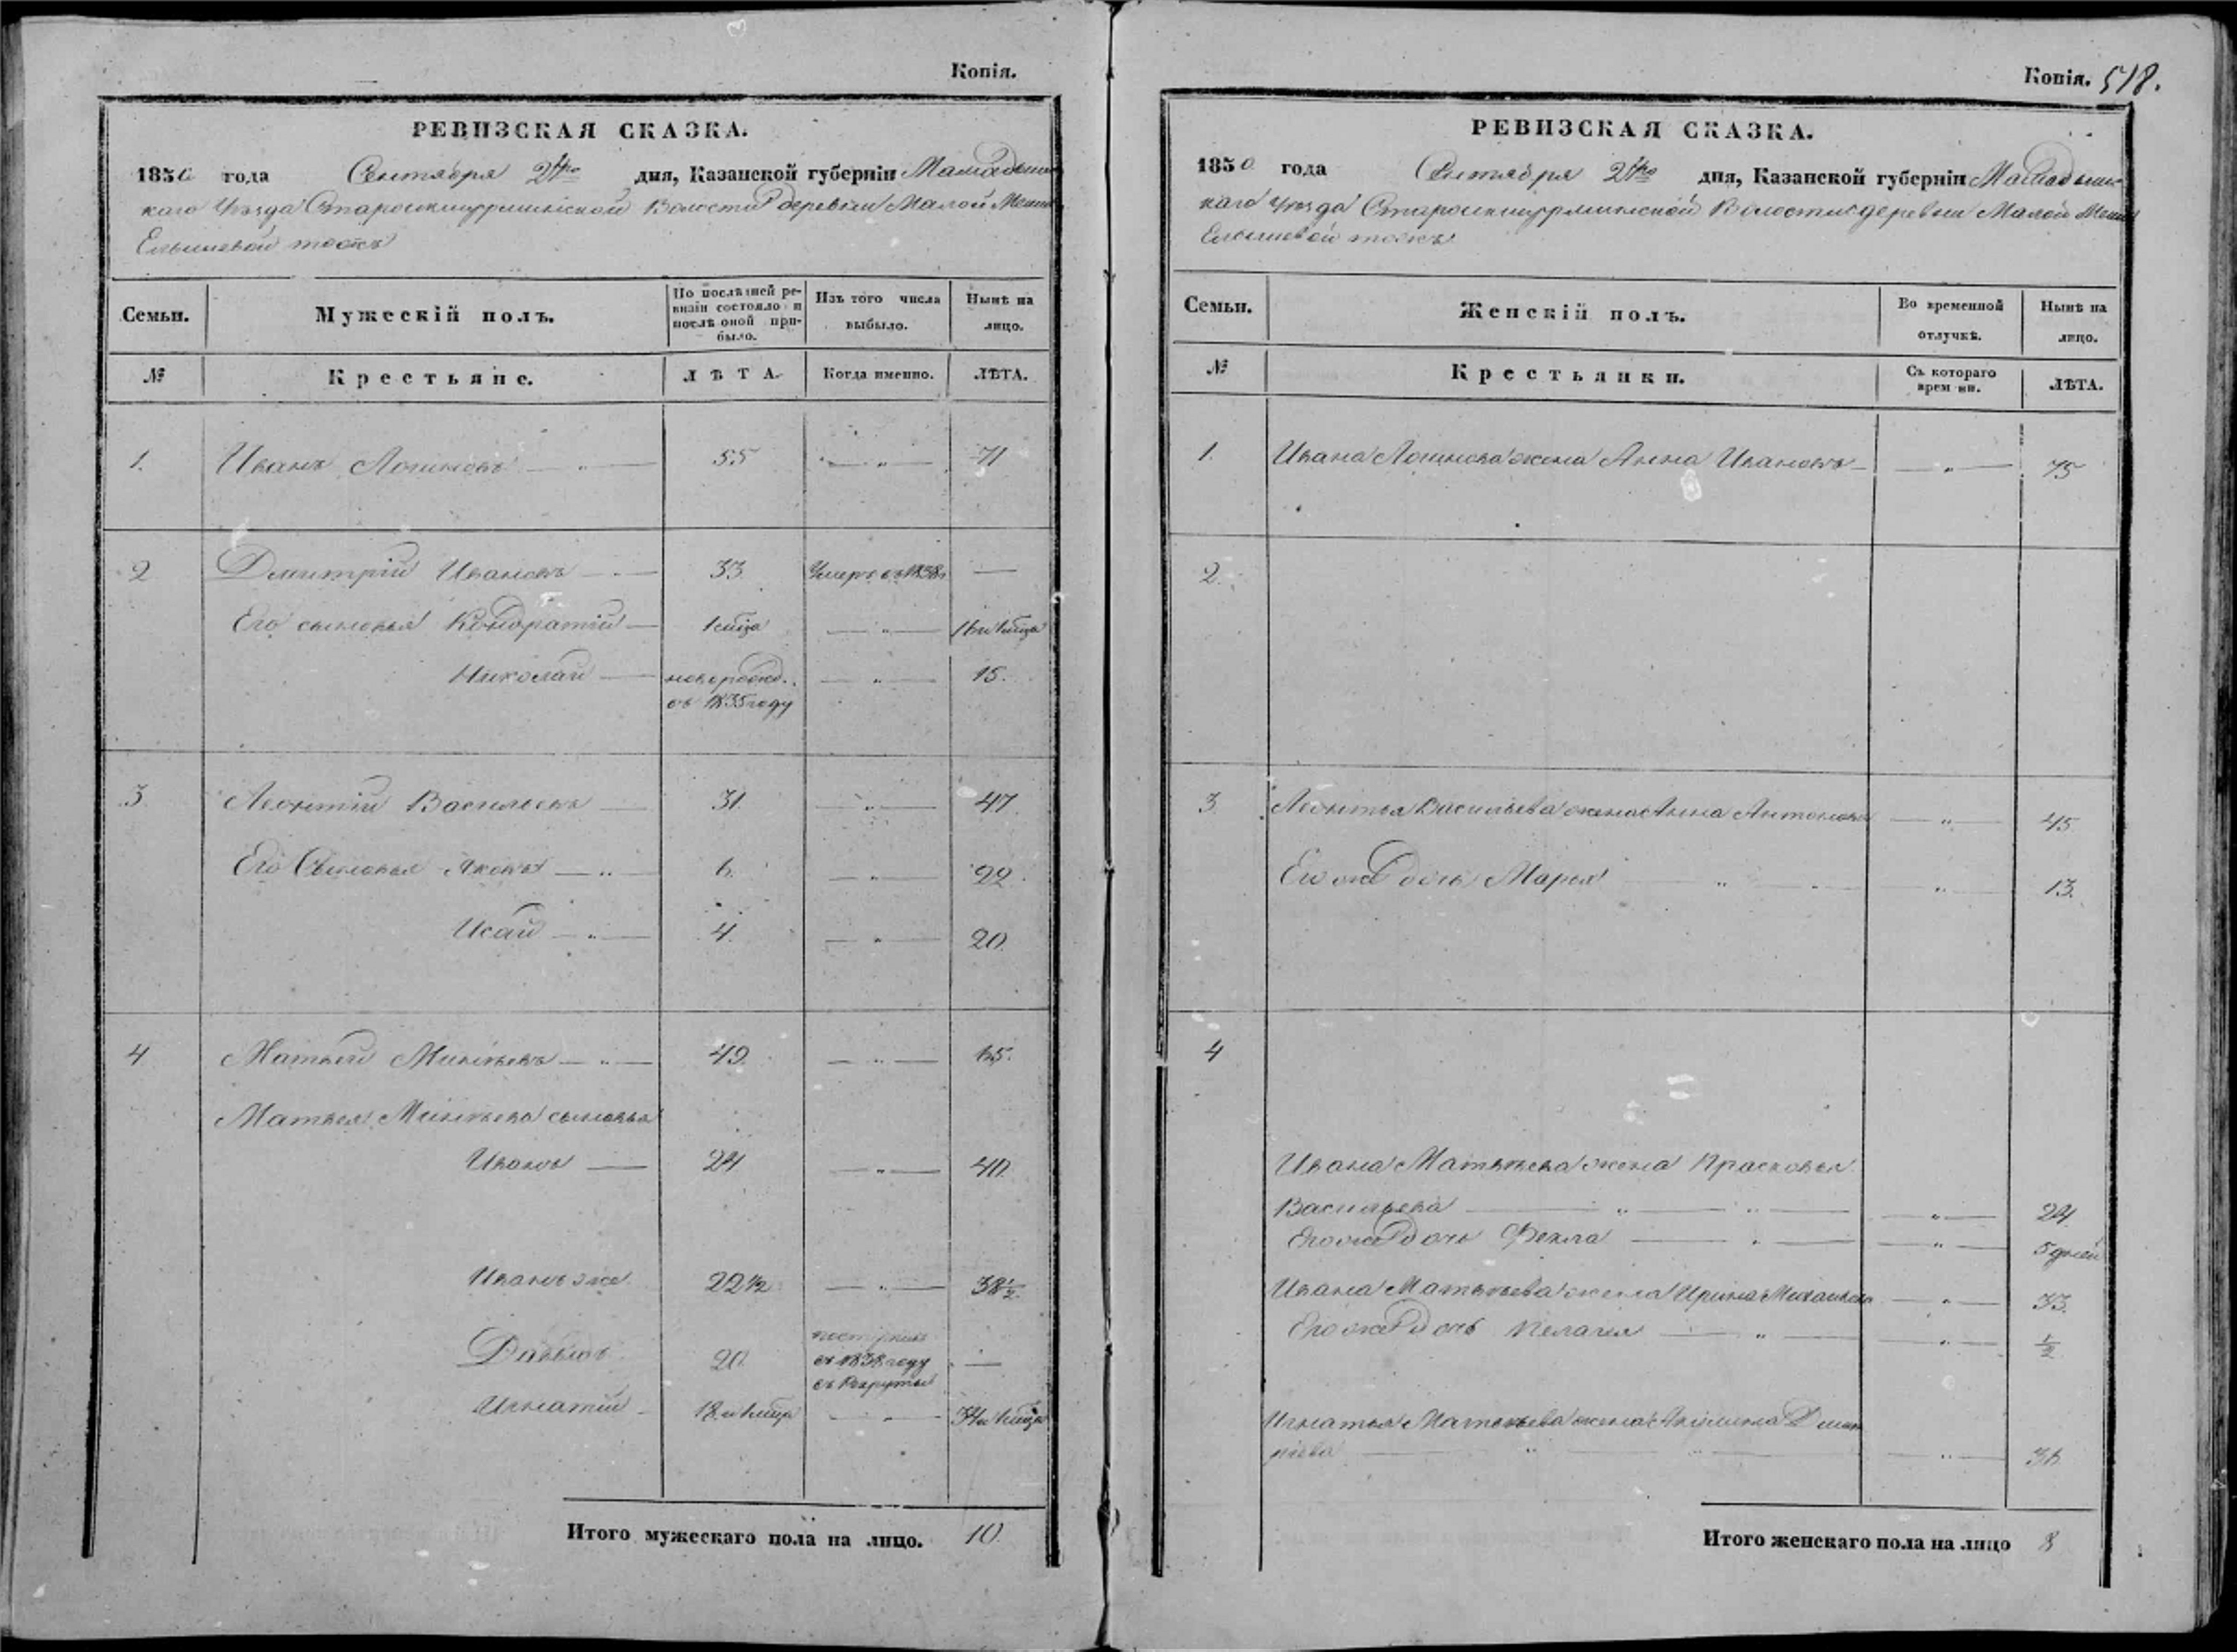 Копія.
РЕВИЗСКАЯ СКАЗКА.
1850 года Сентября 2го дня, Казанской губерніи Мамадыш
каго Уѣзда Волости деревни Малой
тожъ
Семьи. Мужескій полъ. По послѣдней ре-визіи состояло и послѣ оной при-было. Изъ того числа выбыло. Нынѣ на лицо.
№ Крестьяне. ЛѢТА. Когда именно. ЛѢТА.
1. Иванъ Логиновъ — " — 55 — " — 71
2 Дмитрій Ивановъ — " — 33 Умеръ въ 1838г —
Его сыновья Кондратій — — " —
Николай — новорожд. — " — 15.
въ 1835 году
3 Леонтій Васильевъ — 31. — " — 47.
Его Сыновья Яковъ — " — 6. — " — 22.
Исай — " — 4. — " — 20.
4 Матвей — " — 49. — " — 65.
Матвея сыновья
Иванъ — 24 — " — 40.
Иванъ же 22½ — " — 38½.
Давыдъ 20. поступилъ —
въ 1838 году
въ Рекруты
Игнатій —
Итого мужескаго пола на лицо. 10.
Копія. 518.
РЕВИЗСКАЯ СКАЗКА.
1850 года Сентября 2го дня, Казанской губерніи Мамадыш
каго Уѣзда Волости деревни Малой
тожъ
Семьи. Женскій полъ. Во временной отлучкѣ. Нынѣ на лицо.
№ Крестьянки. Съ котораго врем ни. ЛѢТА.
1. Ивана Логинова жена Анна Иванова — — " — 75
2.
3. Леонтья Васильева жена Анна Антонова — " — 45
Его же дочь Марья — " — 13.
4
Ивана Матвѣева жена Прасковья
Васильева — " — " — — " — 24
Его же дочь Фекла — " — — " — 5 дней
Ивана Матвѣева жена Ирина — " — 33.
Его же дочь Пелагея — " — — " — ½
Игнатья Матвѣева жена Акулина Дмит
ріева — " — " — — " — 36
Итого женскаго пола на лицо 8